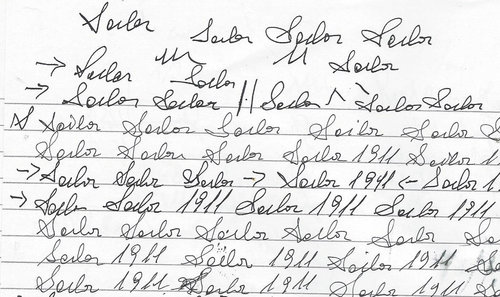 Sailor Sailor Sailor Sailor
→ Sailor Sailor Sailor
→ Sailor Sailor || Sailor Sailor Sailor
Sailor Sailor Sailor Sailor Sailor S
Sailor Sailor Sailor Sailor 1911 Sailor 1
→ Sailor Sailor Sailor → Sailor 1911 ← Sailor 1
→ Sailor Sailor 1911 Sailor 1911 Sailor 1911
Sailor Sailor Sailor Sailor Sailor Sa
Sailor 1911 Sailor 1911 Sailor 1911 S
Sailor 1911 Sailor 1911 Sailor 1911 S